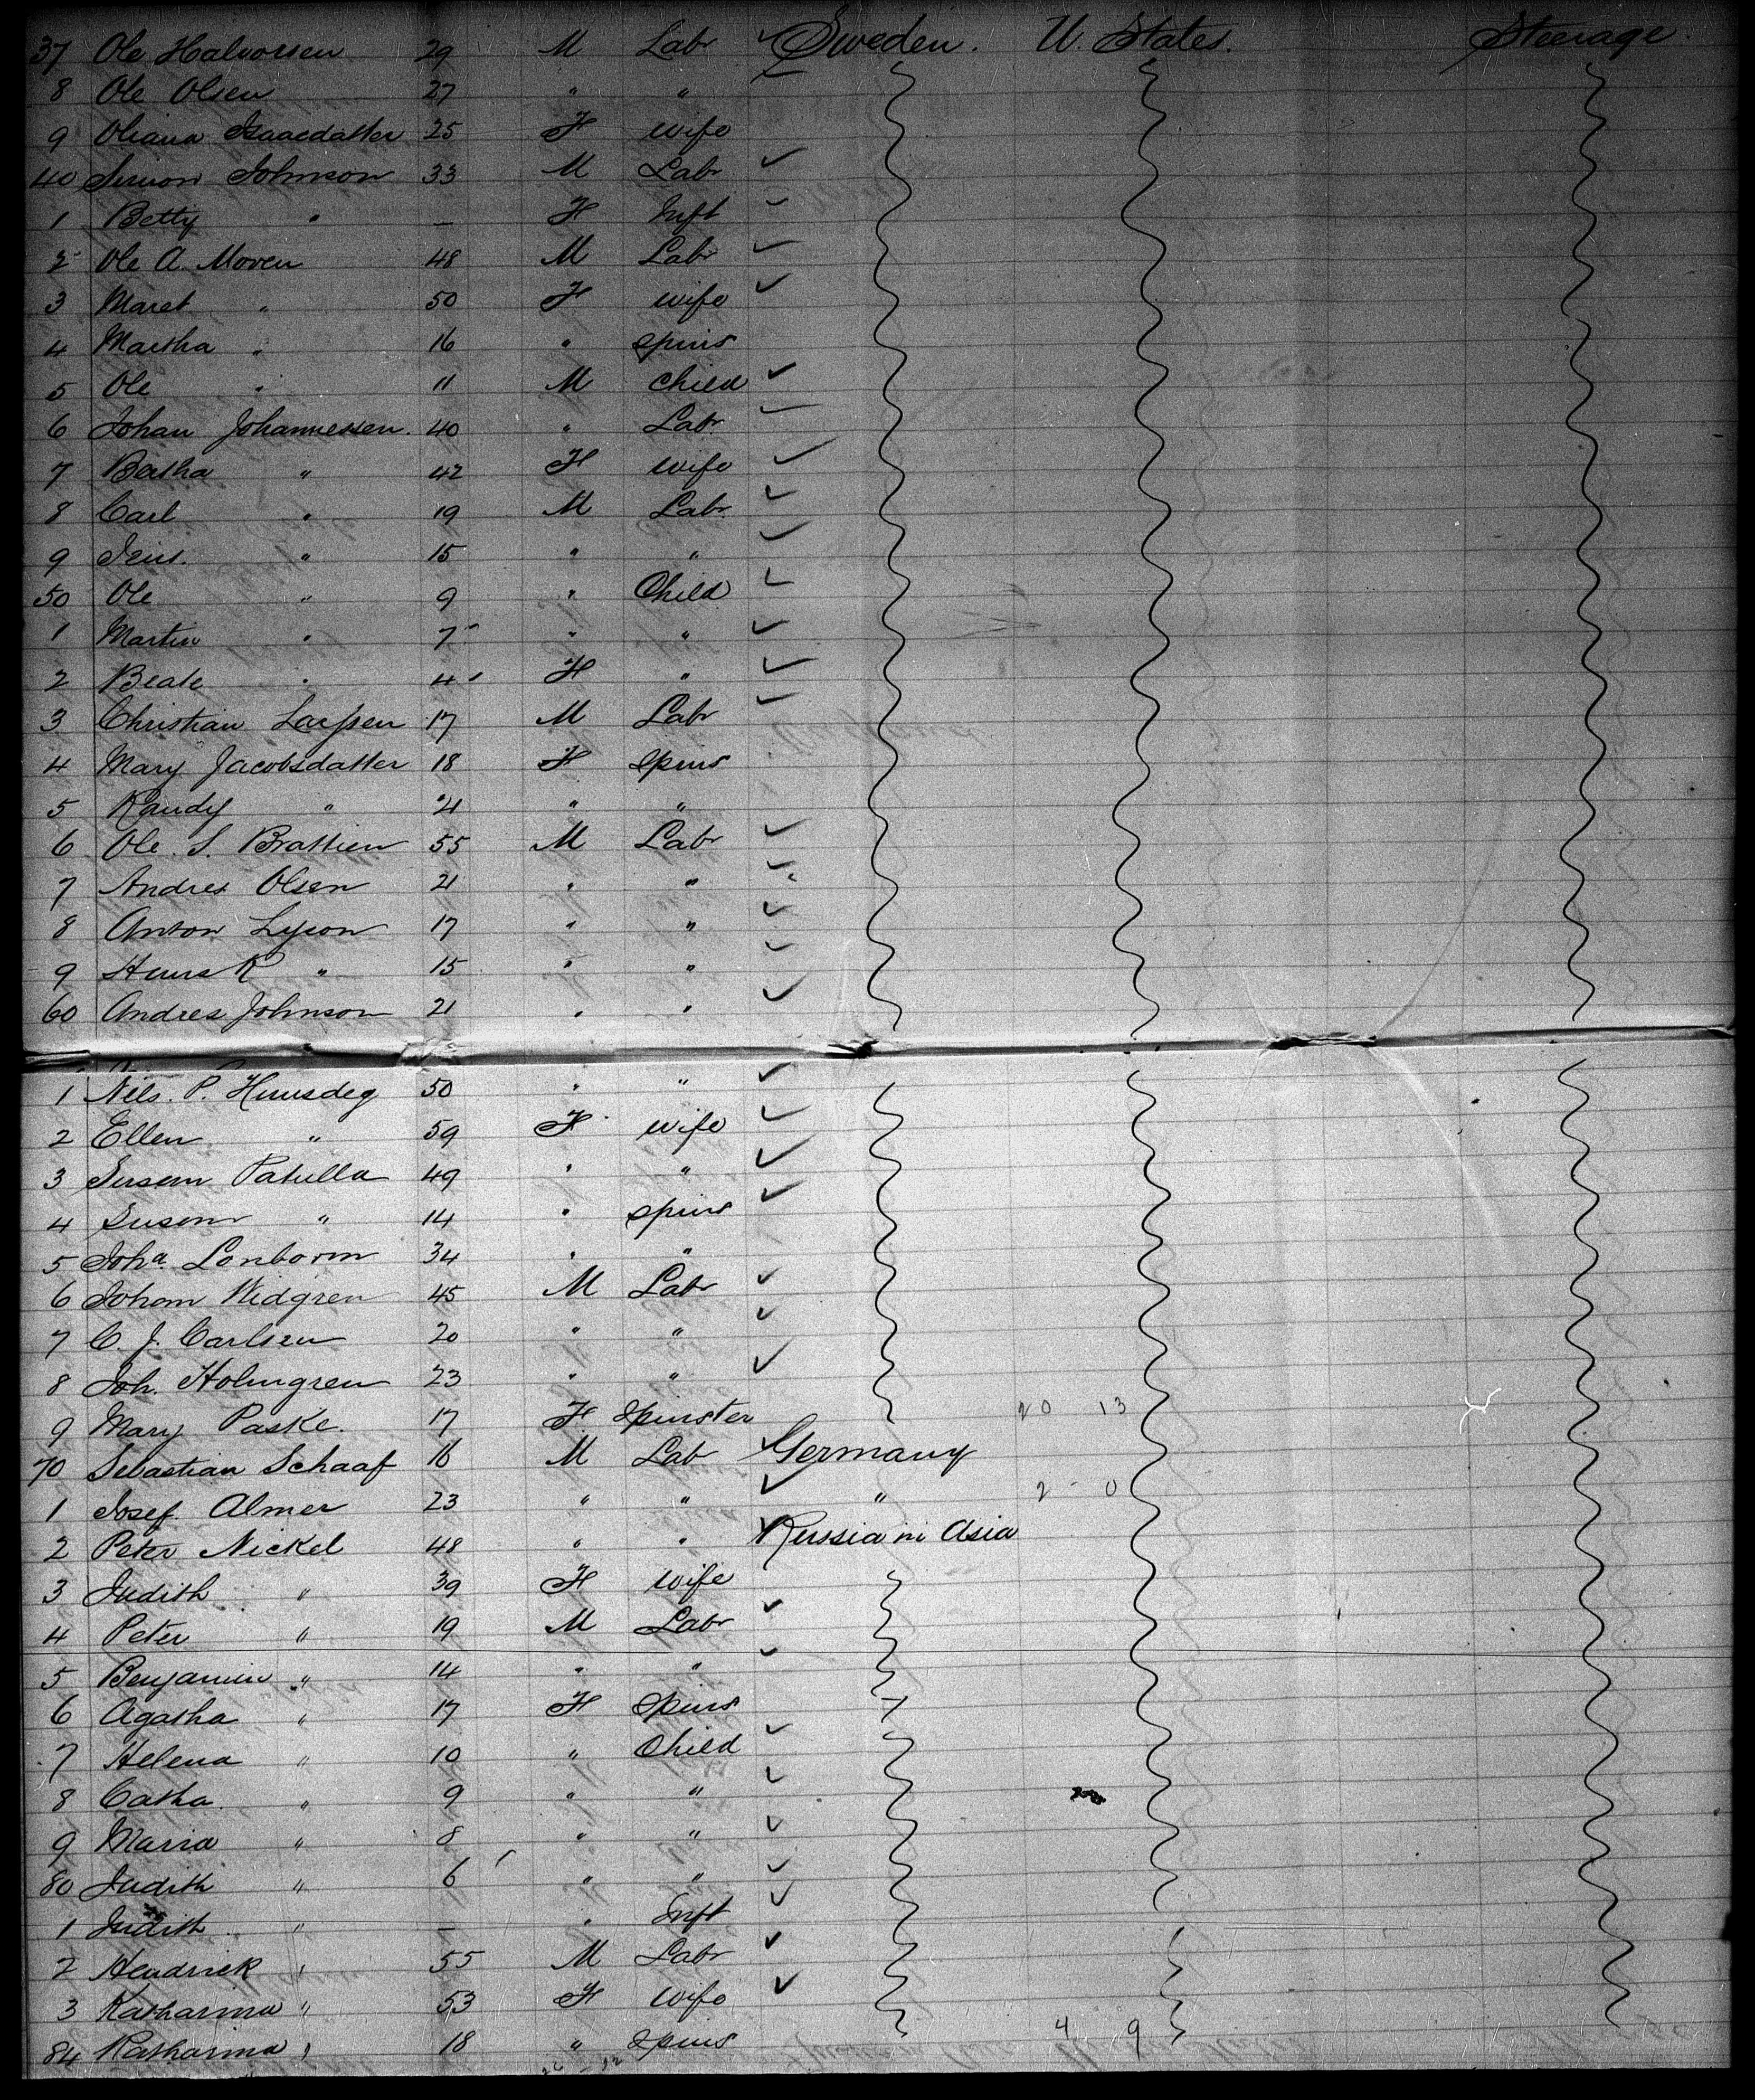 37 Ole Halvorsen 29 M Labr Sweden. U. States. Steerage
8 Ole Olsen 27 " "
9 Oliana Isaacdatter 25 F wife
40 Simon Johnson 33 M Labr
1 Betty " – F Inft
2 Ole A. Moven 48 M Labr
3 Maret " 50 F wife
4 Martha " 16 " spins
5 Ole " 11 M Child
6 Johan Johannessen 40 " Labr
7 Bertha " 42 F wife
8 Carl " 19 M Labr
9 " 15 " "
50 Ole " 9 " Child
1 Martin " 7 " "
2 Beate " 4 F "
3 Christian Larssen 17 M Labr
4 Mary Jacobsdatter 18 F spins
5 Randy " 21 " "
6 Ole S. Brattien 55 M Labr
7 Andres Olsen 21 " "
8 Anton Lyson 17 " "
9 " 15 " "
60 Andres Johnson 21 " "
1 Nils. P. 50 " "
2 Ellen " 59 F wife
3 Susem Patulla 49 " "
4 Susem " 14 " spins
5 Joha Lonborm 34 " "
6 Johom Widgren 45 M Labr
7 C. J. Carlsen 20 " "
8 Joh. Holmgren 23 " "
9 Mary Paske. 17 F Spinster 20 13
70 Sebastian Schaaf 16 M Lab Germany
1 Josef. Almer 23 " " " 2 - 0
2 Peter Nickel 48 " " Russia in Asia
3 Judith " 39 F wife
4 Peter " 19 M Labr
5 Benjamin " 14 " "
6 Agatha " 17 F Spins
7 Helena " 10 " Child
8 Catha. " 9 " "
9 Maria " 8 " "
80 Judith " 6 " "
1 Judith " – " Inft
2 Hendrick " 55 M Labr
3 Katharina " 53 F wife
84 Katharina " 18 " Spins 4 9